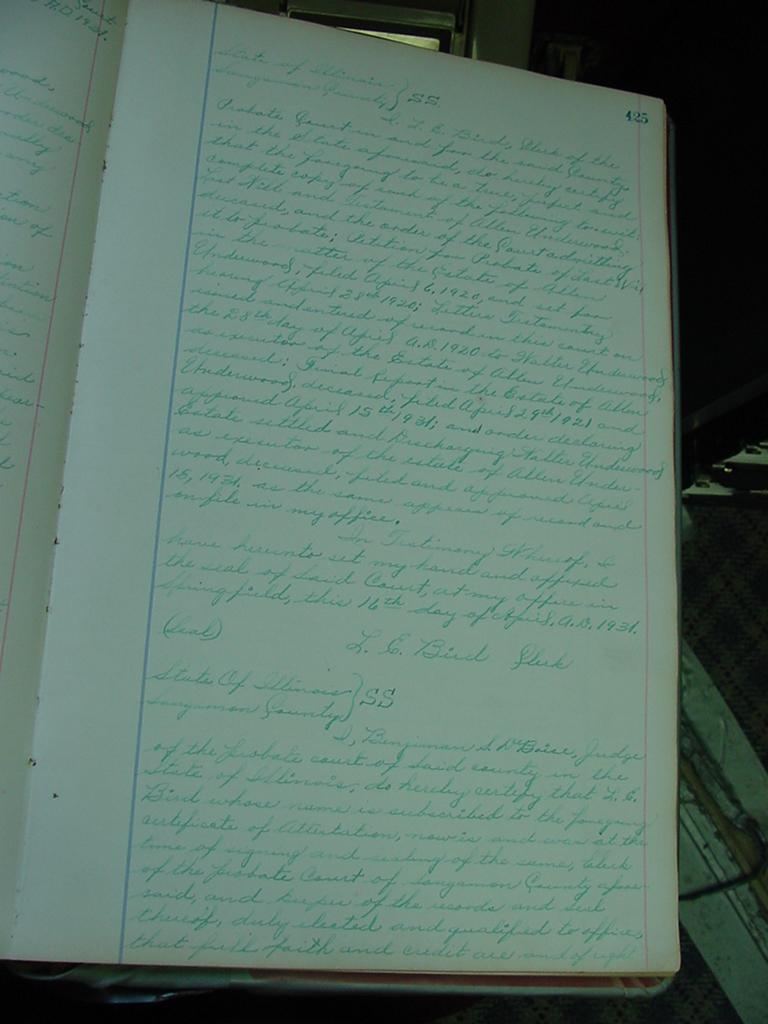 425
State of Illinois }
Sangamon County } SS.
I, L. E. Bird, Clerk of the
Probate Court in and for the said County,
in the State aforesaid, do hereby certify
that the foregoing to be a true, perfect and
complete copy of each of the following to-wit:
Last Will and Testament of Allen Underwood,
deceased, and the order of the Court admitting
it to Probate; Petition for Probate of Last Will
in the matter of the Estate of Allen
Underwood, filed April 6, 1920, and set for
hearing April 28th 1920; Letters Testamentary
issued and entered of record in this court on
the 28th day of April A.D. 1920 to Walter Underwood,
as executor of the Estate of Allen Underwood,
deceased; Final Report in the Estate of Allen
Underwood, deceased, filed April 29th 1921 and
approved April 15th, 1931; and order declaring
Estate settled and Discharging Walter Underwood
as executor of the estate of Allen Under-
wood, deceased, filed and approved April
15, 1931, as the same appears of record and
on file in my office.
In Testimony Whereof, I
have hereunto set my hand and affixed
the seal of Said Court, at my office in
Springfield, this 16th day of April, A.D. 1931.
(Seal)
L. E. Bird Clerk
State Of Illinois }
Sangamon County } SS
I, Benjiman S. DeBoice, Judge
of the Probate court of Said county in the
State of Illinois, do hereby certify that L. E.
Bird whose name is subscribed to the foregoing
certificate of Attestation, now is and was at the
time of signing and sealing of the same, Clerk
of the Probate Court of Sangamon County afore-
said, and keeper of the records and seal
thereof, duly elected and qualified to office,
that full faith and credit are and of right